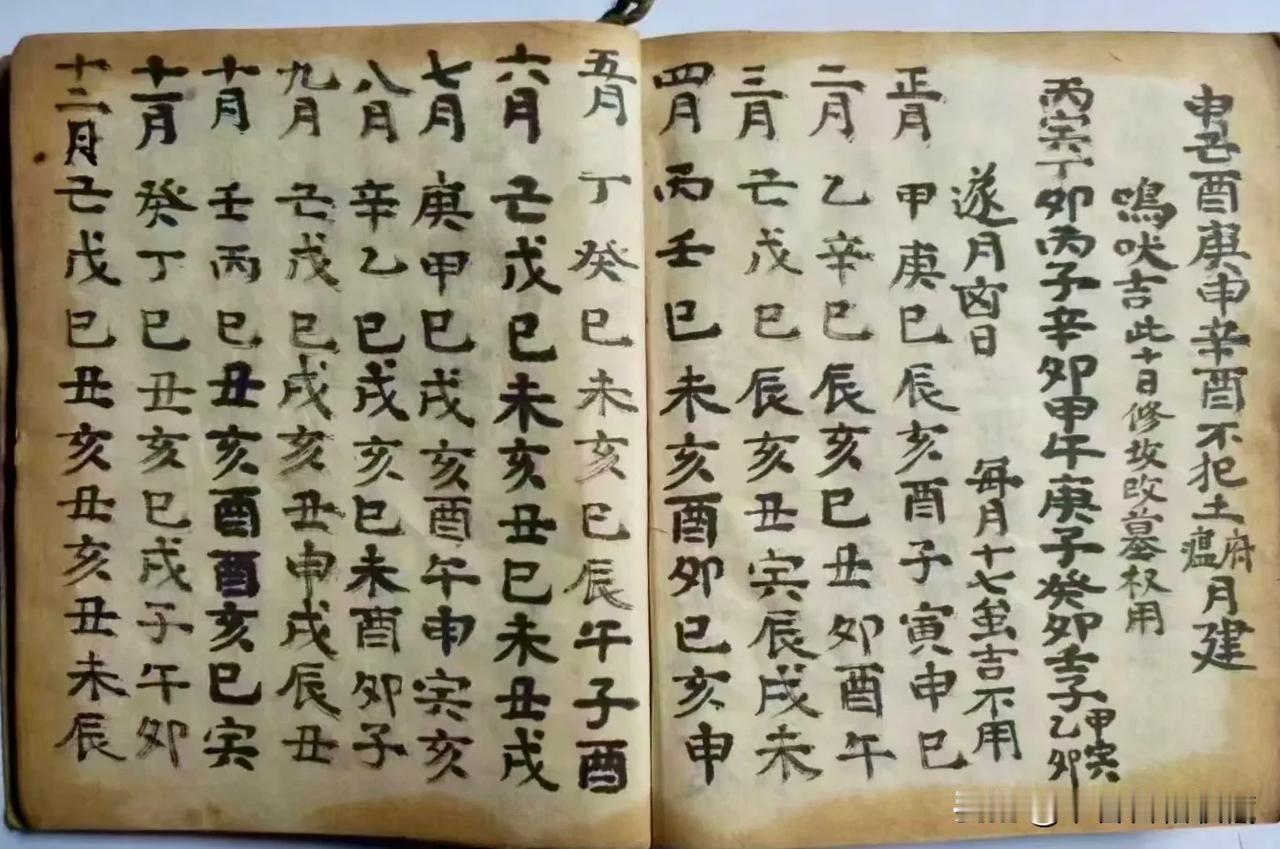 申己酉庚申辛酉不犯土府瘟月建
鳴吠吉此十日修坟改墓权用
丙寅丁卯丙子辛卯甲午庚子癸卯壬子甲寅乙卯
遂月凶日 每月十七虽吉不用
正月 甲庚巳辰亥酉子寅申巳
二月 乙辛巳辰亥巳丑卯酉午
三月 己戊巳辰亥丑寅辰戌未
四月 丙壬巳未亥酉卯巳亥申
五月 丁癸巳未亥巳辰午子酉
六月 己戊巳未亥丑巳未丑戌
七月 庚甲巳戌亥酉午申寅亥
八月 辛乙巳戌亥巳未酉卯子
九月 己戊巳戌亥丑申戌辰丑
十月 壬丙巳丑亥酉酉亥巳寅
十一月 癸丁巳丑亥巳戌子午卯
十二月 己戊巳丑亥丑亥丑未辰